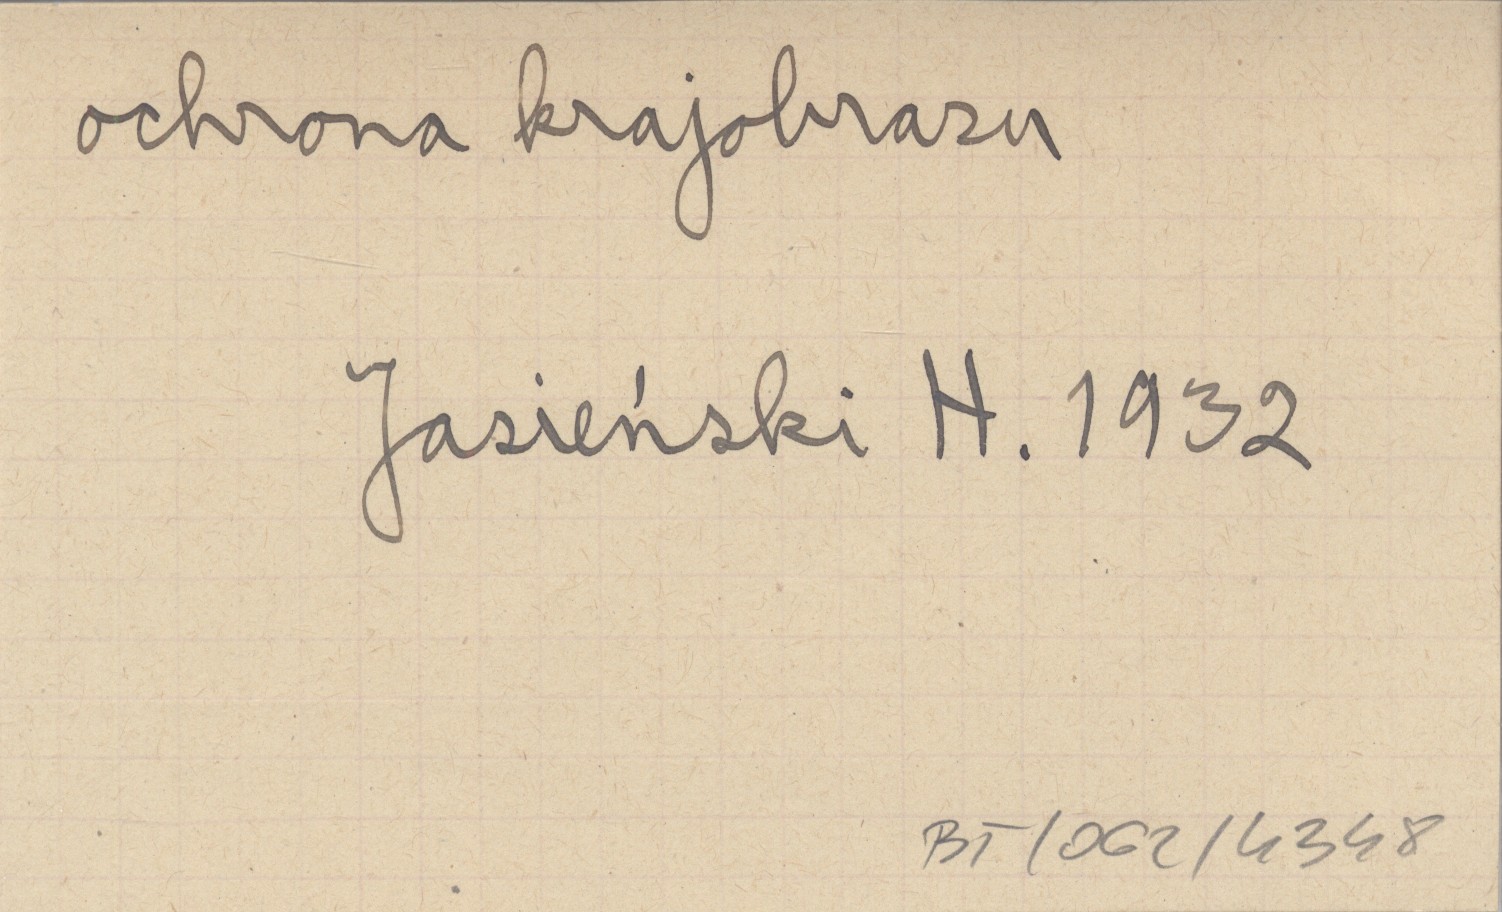 ochrona krajobrazu
Jasieński H. 1932
BT/062/4348